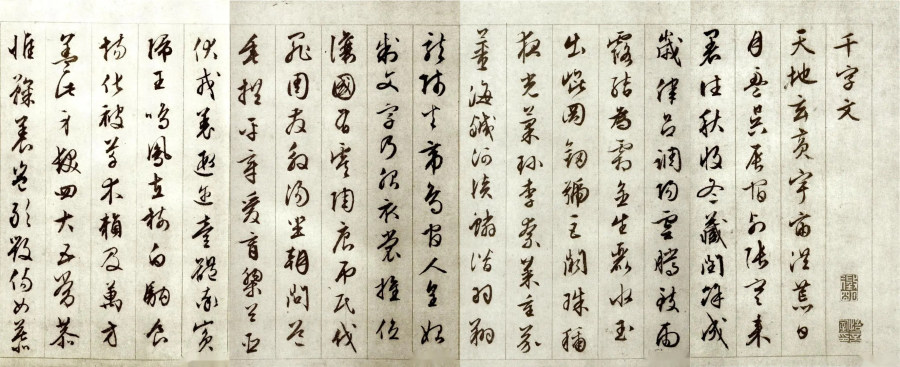 千字文
天地玄黃宇宙洪荒日
月盈昃辰宿列張寒來
暑往秋收冬藏閏餘成
歲律呂調陽雲騰致雨
露結為霜金生麗水玉
出崑岡劍號巨闕珠稱
夜光菓珍李柰菜重芥
薑海鹹河淡鱗潛羽翔
龍師火帝鳥官人皇始
制文字乃服衣裳推位
讓國有虞陶唐弔民伐
罪周發殷湯坐朝問道
垂拱平章愛育黎首臣
伏戎羌遐邇壹體率賓
歸王鳴鳳在樹白駒食
場化被草木賴及萬方
蓋此身髮四大五常恭
惟鞠養豈敢毀傷女慕